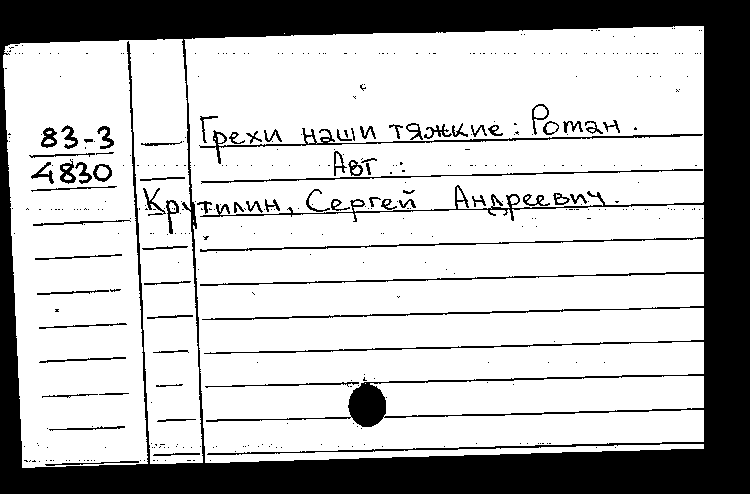 83-3
4830
Грехи наши тяжкие: Роман.
Авт.:
Крутилин, Сергей Андреевич.